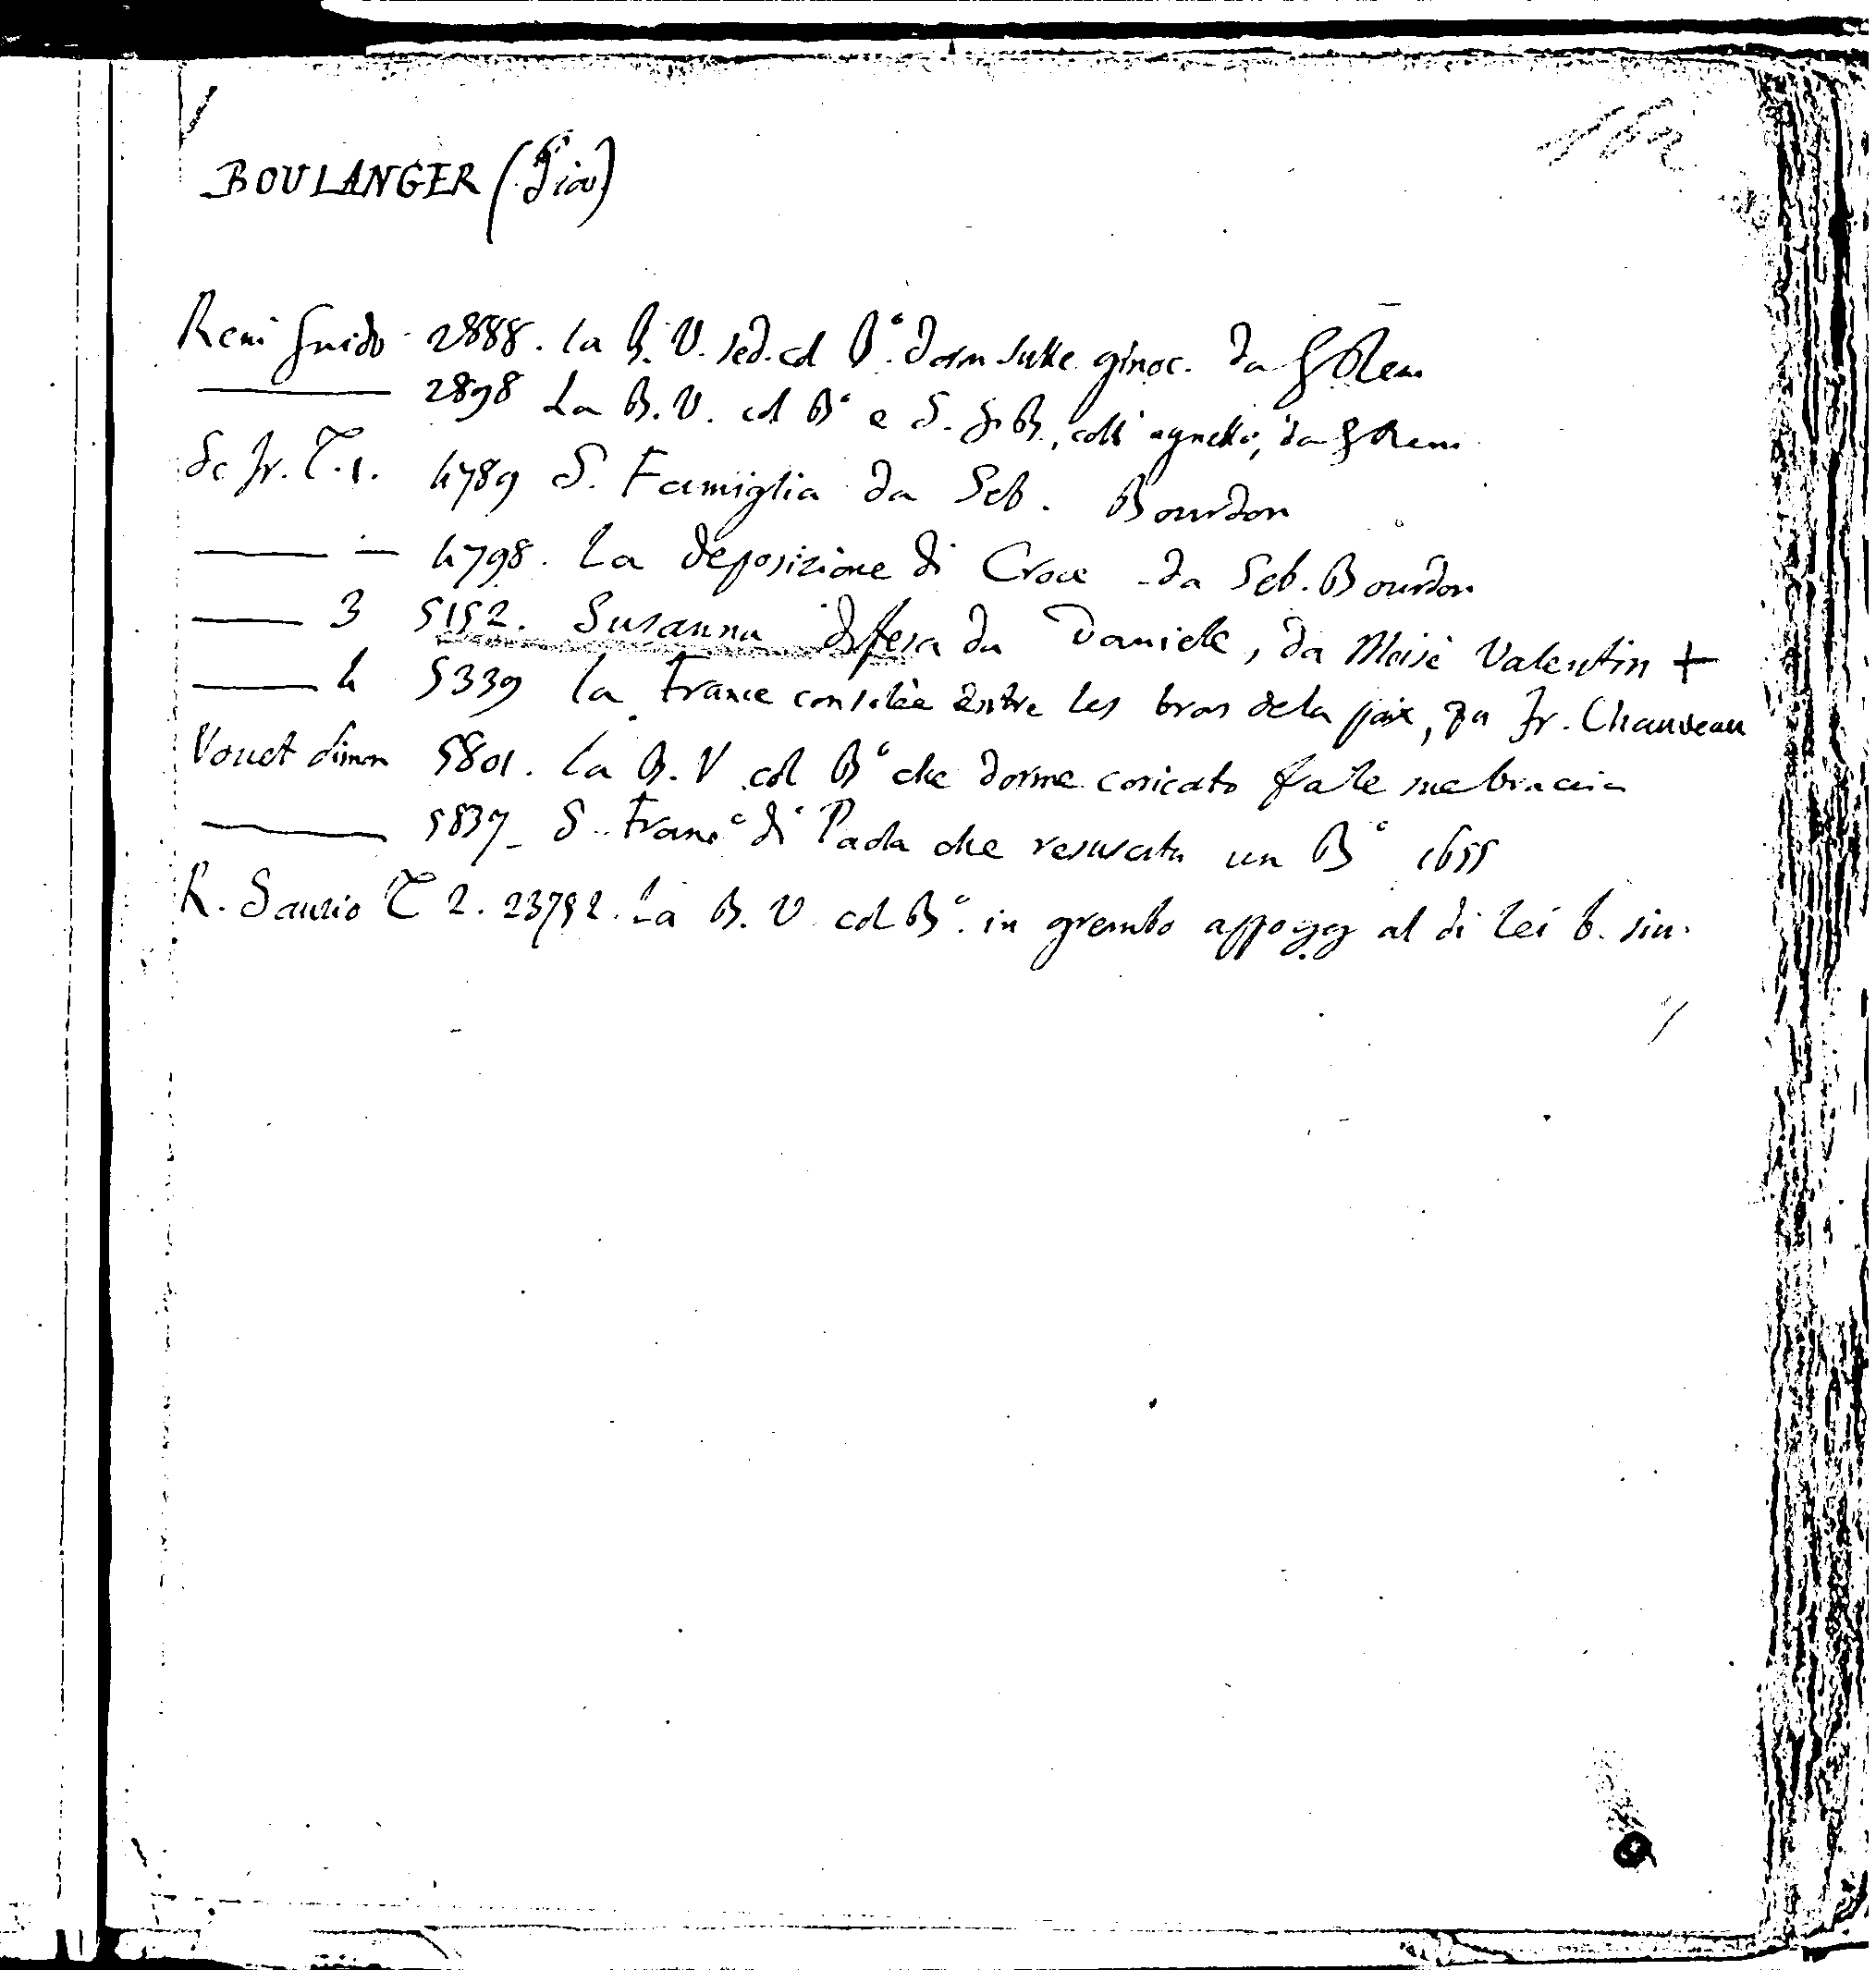 BOULANGER (Giov)
Reni Guido 2888. la B. V. sed. col B° dorm sulle ginoc. da G Reni
——— 2898 La B. V. col B° e S. G. B., coll agnello, da G Reni
Sc fr. T. 1. 4789 S. Famiglia da Seb. Bourdon
——— — 4798. La deposizione di Croce da Seb. Bourdon
——— 3 5152. Susanna difesa da Daniele, da Moisè Valentin +
——— 4 5339 la France consolée entre les bras de la paix, da Fr. Chauveau
Vouet Simon 5801. La B. V col B° che dorme coricato fra le sue braccia
——— 5837_ S. Franc° di Paola che resuscita un B° 1655
R. Sanzio T 2. 23792. La B. V. col B°. in grembo appogg al di lei b. sin.